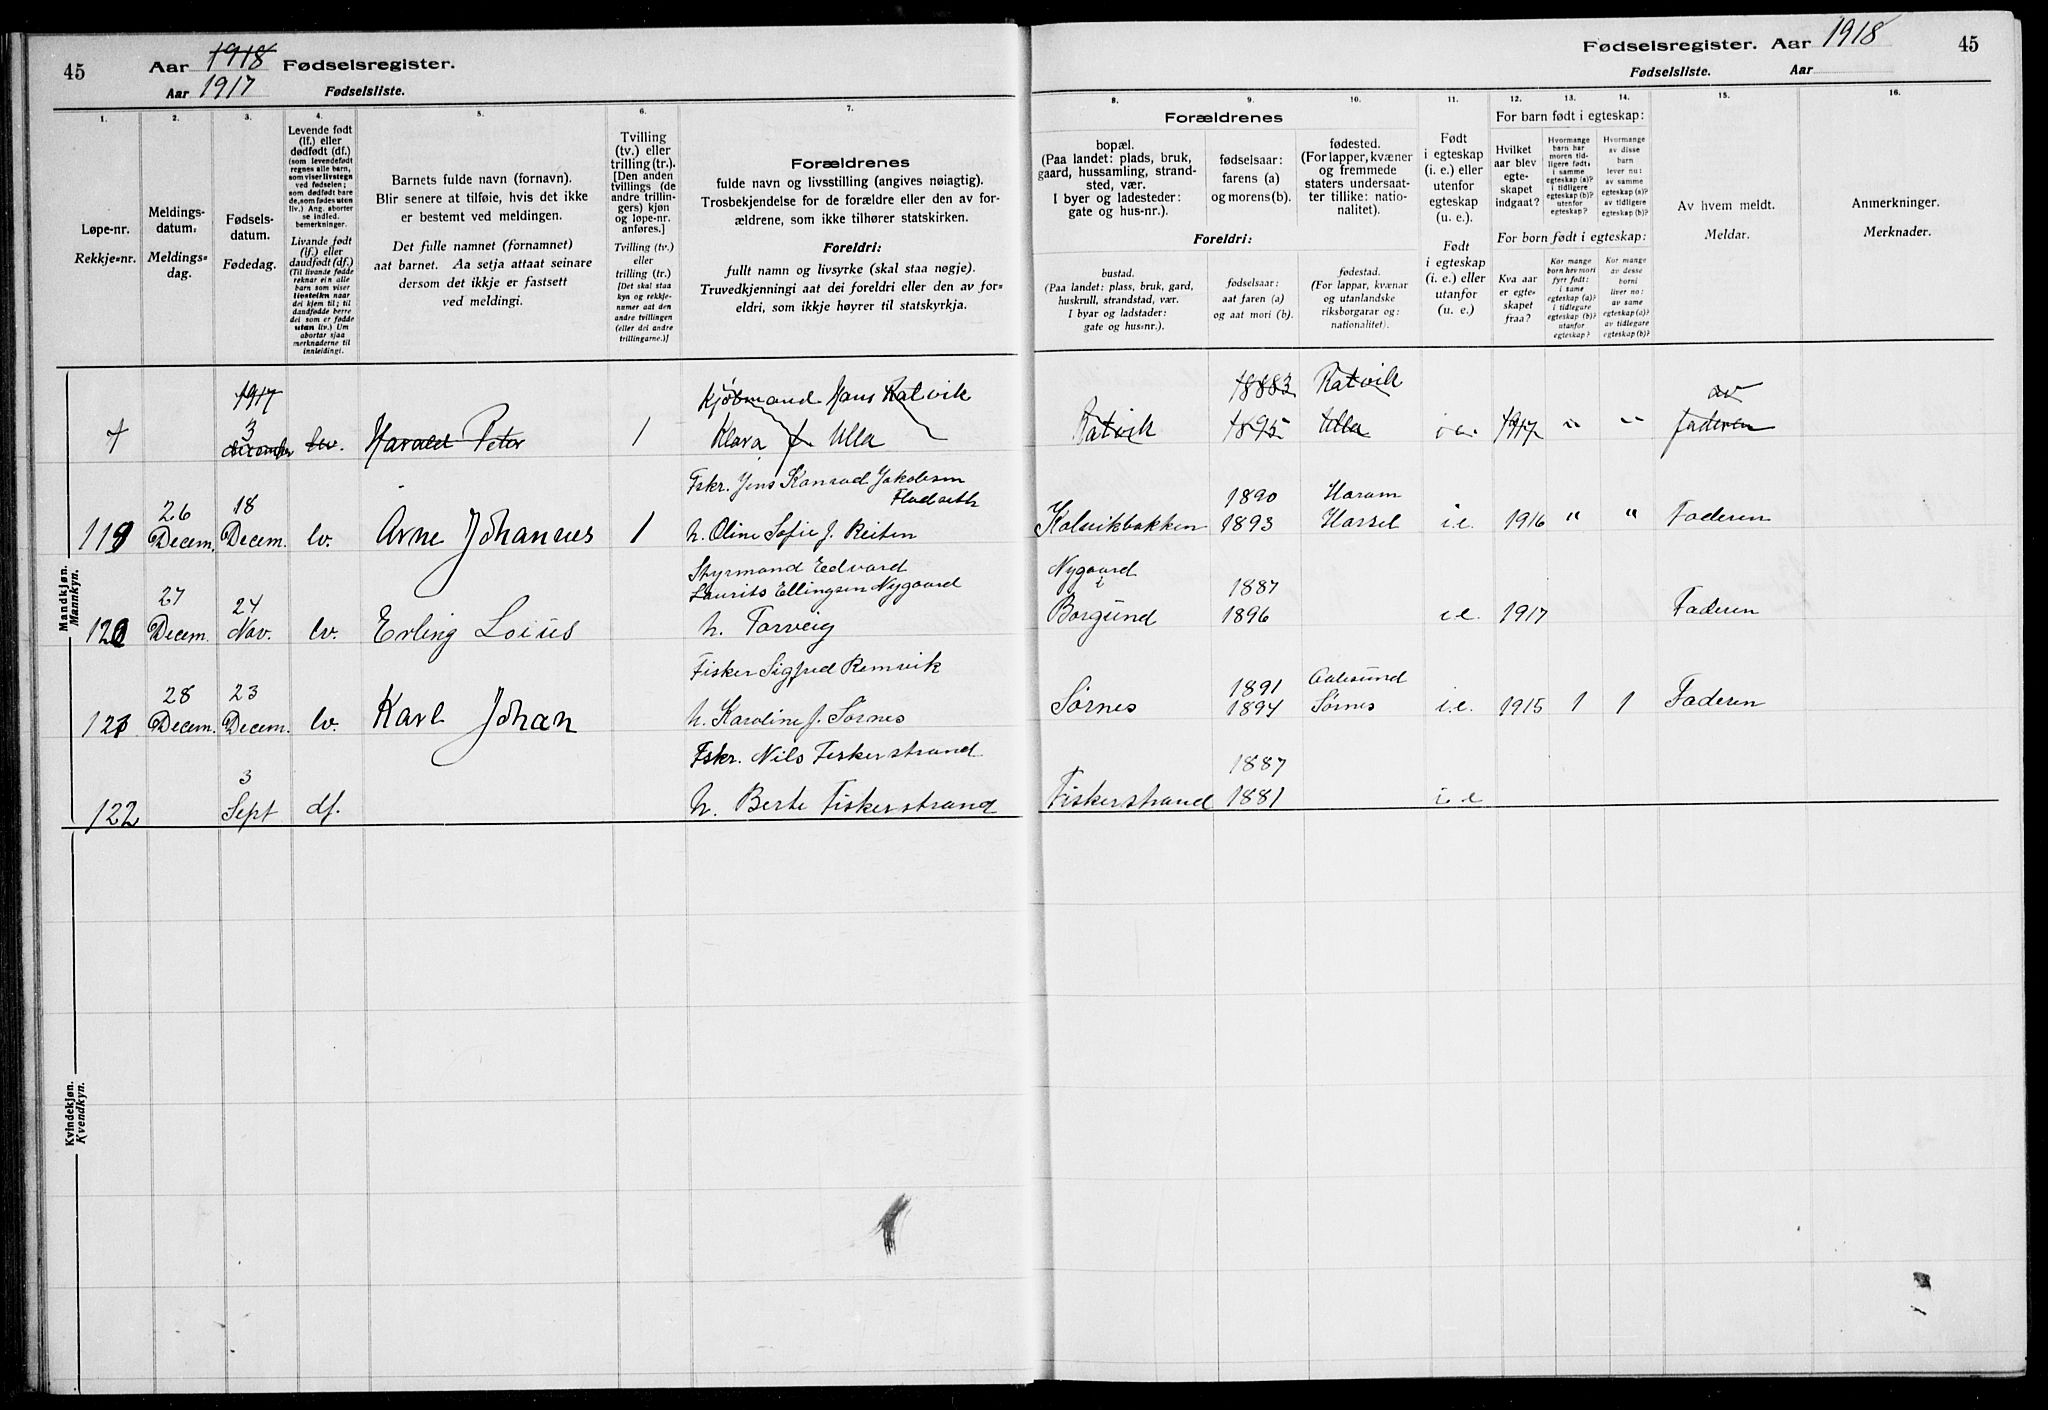 45
Aar 1918 Fødselsregister.
Aar 1917 Fødselsliste.
Fødselsregister. Aar 1918
45
Fødselsliste. Aar
1.
Løpe-nr.
Rekkje-nr.
2.
Meldings-
datum.
Meldings-
dag.
3.
Fødsels-
datum.
Fødedag.
4.
Levende født
(lf.) eller
dødfødt (df.)
(som levendefødt
regnes alle barn,
som viser livstegn
ved fødselen;
som dødfødt bare
de, som fødes uten
liv.) Ang. aborter
se indled.
bemerkninger.
Livande født
(lf.) eller
daudfødt (df.)
(Til livande fødde
reknar ein alle
barn som viser
livsteikn naar
dei kjem til; til
daudfødde berre
dei som er fødde
utan liv.) Um
abortar sjaa
merknaderne til
innleidingi.
5.
Barnets fulde navn (fornavn).
Blir senere at tilføie, hvis det ikke
er bestemt ved meldingen.
Det fulle namnet (fornamnet)
aat barnet. Aa setja attaat seinare
dersom det ikkje er fastsett
ved meldingi.
6.
Tvilling
(tv.) eller
trilling (tr.).
[Den anden
tvillings (de
andre trillin-
gers) kjøn
og løpe-nr.
anføres.]
Tvilling (tv.)
eller
trilling (tr.)
[Det skal staa
kyn og rekkje-
numer aat den
andre tvillingen
(eller dei andre
trillingarne.)]
7.
Forældrenes
fulde navn og livsstilling (angives nøiagtig).
Trosbekjendelse for de forældre eller den av for-
ældrene, som ikke tilhører statskirken.
Foreldri:
fullt namn og livsyrke (skal staa nøgje).
Truvedkjenningi aat dei foreldri eller den av for-
eldri, som ikkje høyrer til statskyrkja.
8.
9.
10.
Forældrenes
bopæl.
(Paa landet: plads, bruk,
gaard, hussamling, strand-
sted, vær.
I byer og ladesteder:
gate og hus-nr.).
fødselsaar:
farens (a)
og morens (b).
fødested.
(For lapper, kvæner
og fremmede
staters undersaat-
ter tillike: natio-
nalitet).
Foreldri:
bustad.
(Paa landet: plass, bruk, gard,
huskrull, strandstad, vær.
I byar og ladstader:
gate og hus-nr.).
fødselsaar:
aat faren (a)
og aat mori (b).
fødestad.
(For lappar, kvænar
og utanlandske
riksborgarar og:
nationalitet).
11.
Født
i egteskap
(i. e.) eller
utenfor
egteskap
(u. e.).
Født
i egteskap
(i. e.) eller
utanfor
(u. e.).
12.
13.
14.
For barn født i egteskap:
Hvilket
aar blev
egte-
skapet
indgaat?
Hvormange
barn har
moren tid-
ligere født:
i samme
egteskap (a)?
i tidligere
egteskap (b)?
utenfor
egteskap?
Hvormange
av disse
barn
lever nu:
av samme
egteskap (a)?
av tidligere
egteskap (b)?
For born født i egteskap:
Kva aar
er egte-
skapet
fraa?
Kor mange
born hev mori
fyrr født:
i same
egteskap (a)?
i tidlegare
egteskap (b)?
utanfor
egteskap?
Kor mange
av desse
borni
liver no:
av same
egteskap (a)?
av tidlegare
egteskap (b)?
15.
Av hvem meldt.
Meldar.
16.
Anmerkninger.
Merknader.
Mandkjøn.
Mannkyn.
1917
3
december lev. Harald Peter 1
Kjøbmand Hans Ratvik
Klara f. Ulla
Ratvik 1883 1895 Ratvik Ulla 1917 " " av faderen
119 26 Decem. 18 Decem. lv. Arne Johannes 1
Fskr. Jens Konrad Jakobsen
h. Oline Sofie J. Reiten
Kalvikbakken 1890 1893 Haram Hassel i.e. 1916 " " Faderen
120 27 Decem. 24 Nov. lv. Erling Loius
Styrmand Edvard
Laurits Ellingsen Nygaard
h. Torveig
Nygaard
i
Borgund 1887 1896 i.e. 1917 Faderen
121 28 Decem. 23 Decem. lv. Karl Johan
Fisker Sigfred Remvik
h. Karoline J. Sørnes
Sørnes 1891 1894 Aalesund Sørnes i.e. 1915 1 1 Faderen
122 3 Sept df.
Fskr. Nils Fiskerstrand
h. Berte Fiskerstrand
Fiskerstrand 1887 1881 i.e
Kvindekjøn.
Kvendkyn.